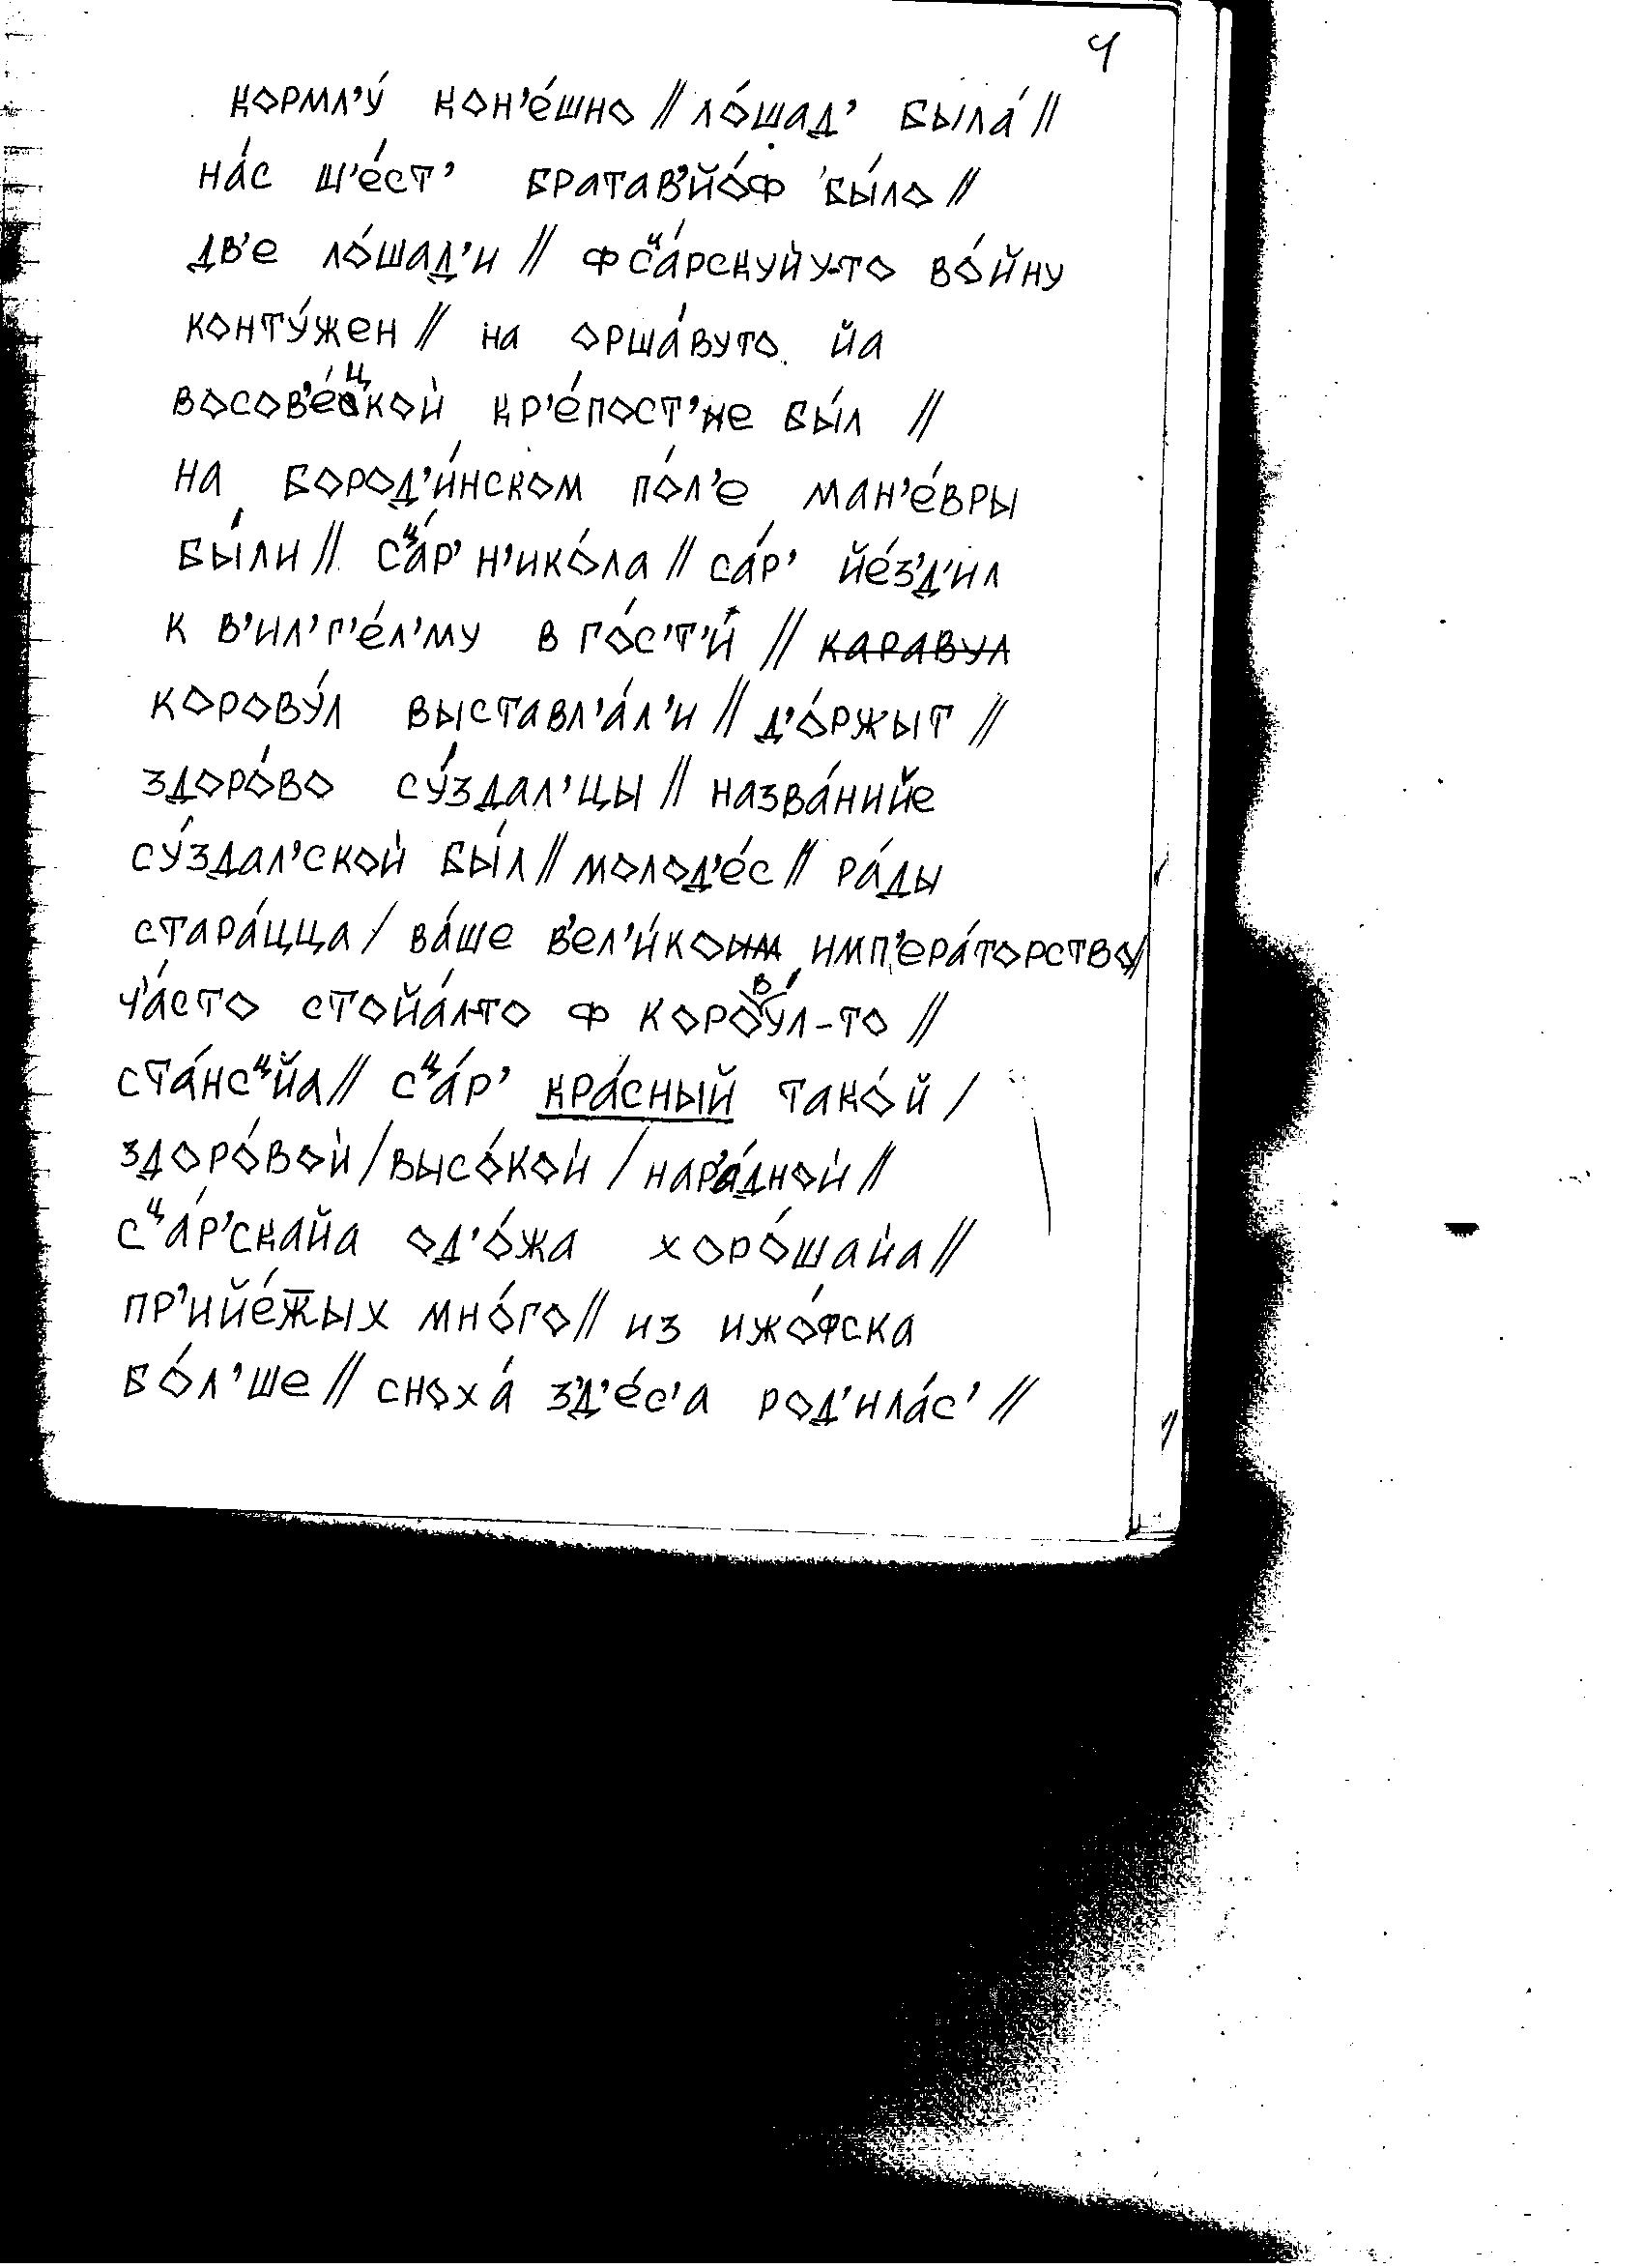 4
кормл’у́ кон’е́шно // ло́шад’ была́ //
на́с ш’е́ст’ братав’йо́ф бы́ло //
дв’е ло́шад’и // ф сца́рскуйу-то во́йну
конту́жен // на оршавуто йа
восов’е́цкой кр’е́пост’не бы́л //
на бород’и́нском по́л’е ман’е́вры
бы́ли // сца́р’ н’ико́ла // са́р’ йе́з’д’ил
к в’ил’г’е́л’му в го́с’т’и // каравул
корову́л выставл’а́л’и // д’о́ржыт //
здоро́во су́здал’цы // назва́нийе
су́здал’ской бы́л // молод’е́с // ра́ды
стара́цца / ва́ше в’ел’и́ко имп’ера́торство //
ч’а́сто стойа́л-то ф корову́л-то //
ста́нсцйа // сца́р’ кра́сный тако́й /
здоро́вой / высо́кой / нар’а́дной //
сца́р’скайа од’о́жа хоро́шайа //
пр’ийе́жых мно́го // из ижо́фска
бо́л’ше // сноха́ з’д’е́с’а род’ила́с’ //